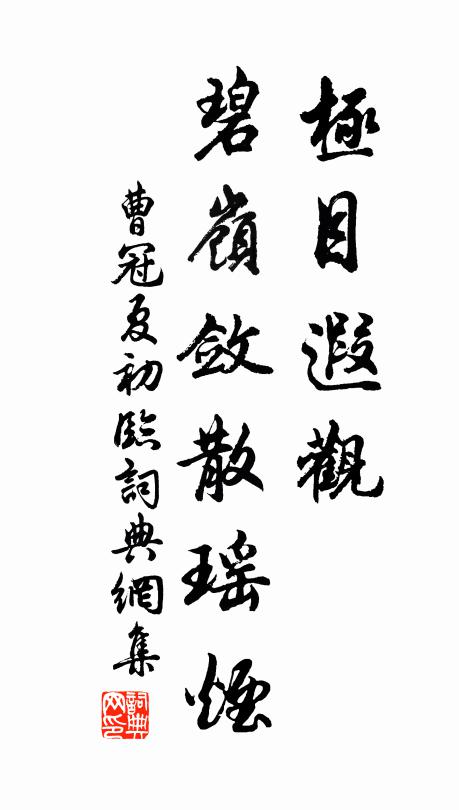 極目遐觀
碧嶺斂散瑶煙
曹冠夏初臨詞典網集
詞典网印